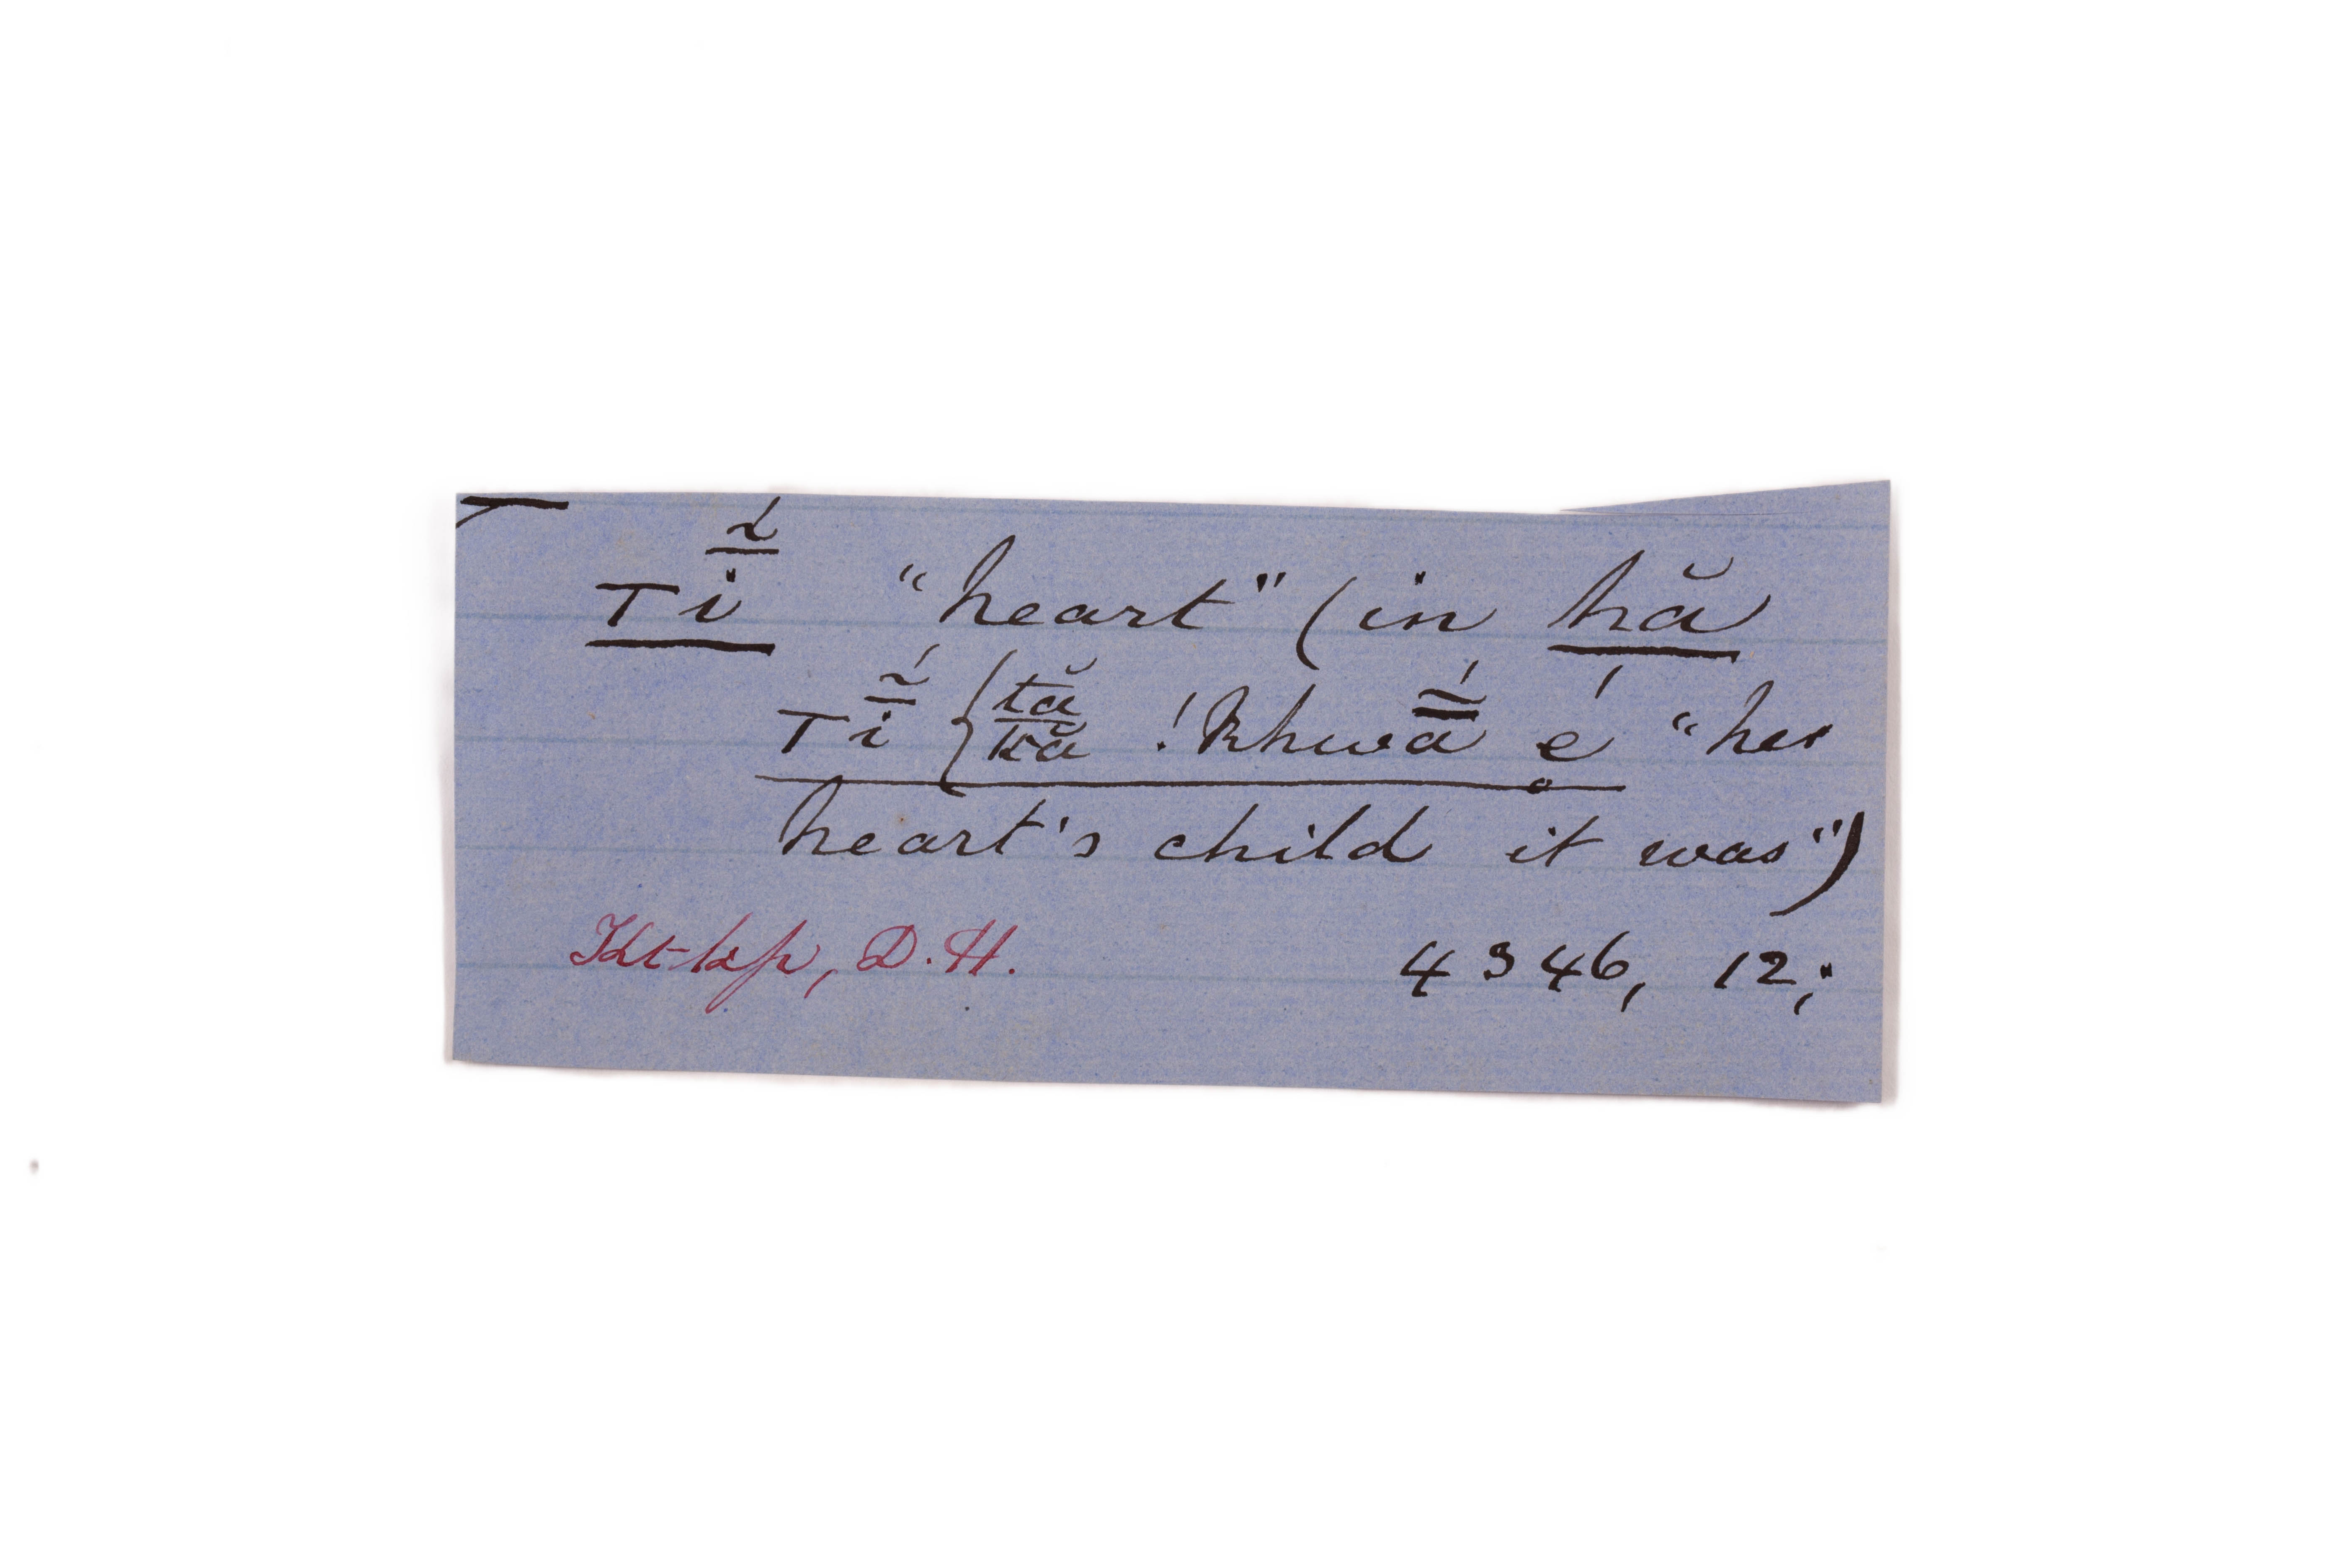 T
Tĩ̱́ "heart" (in hă
Tĩ̱́ {tă/kă !khwã̳́ é̥ "her
heart's child it was")
Kt-kp, D.H. 4346, 12,;